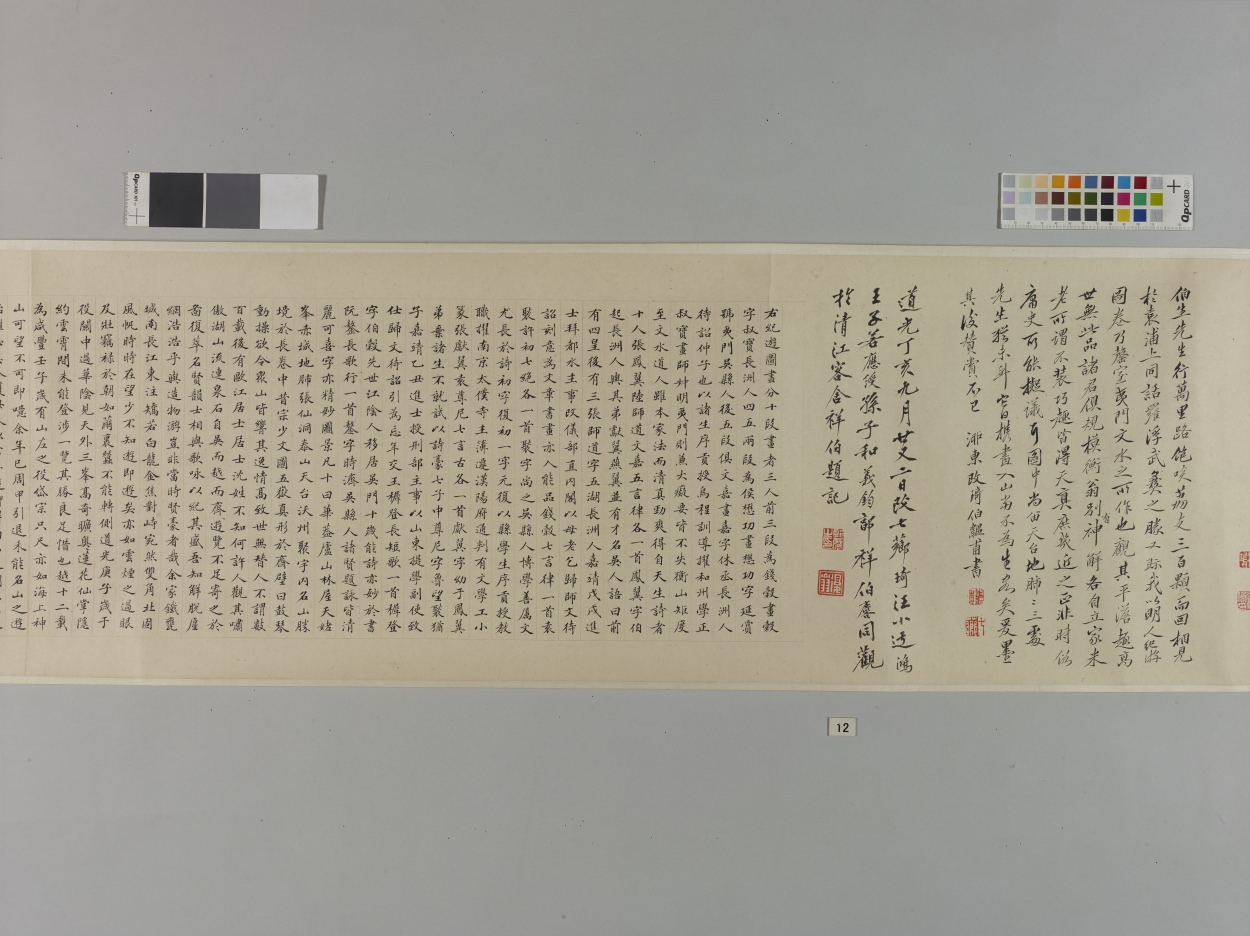 伯生先生行萬里路飽啖荔支三百顆而回相見
於袁浦上同話羅浮武彝之勝又眎我以明人紀游
圖卷乃罄室夷門文水之所作也觀其平澹超高
世無此品諸君俱規模衡翁別神解各自立家未
老可謂不裝巧趣皆得天真庶幾近之正非時俗
庸史可能擬議耳圖中尚留天台地肺三處
其後積賞不已 浙東改琦伯韞甫書
道光丁亥九月廿又二日改七薌琦汪小迂鴻
王子若應綬孫子和義鈞部祥伯麐同觀
於清江客舍祥伯題記
右紀遊圖書分十段畫者三人前三段為錢穀畫穀
字叔寶長洲人四五兩段為侯懋功畫懋功字延賞
號夷門吳縣人後五段俱文嘉畫嘉字休丞長洲人
待詔仲子也以諸生序貢授烏程訓導擢和州學正
叔寶畫師舛明夷門則兼大癡要皆不失衡山矩度
至文水道人雖本家法而清真勁爽得自天生詩者
十人張鳳翼陸師道文嘉五言律各一首鳳翼字伯
起長洲人與其弟獻翼燕翼並有才名吳人語曰前
有四皇後有三張師道字五湖長洲人嘉靖戊戌進
士拜都水主事改儀部直內閣以母老乞歸師文待
詔刻意為文章書畫亦入能品錢穀七言律一首袁
褧許初七絕各一首褧字尚之吳縣人博學善屬文
尤長於詩初字復初一字元復以縣學生序貢授教
職擢南京太僕寺主簿遷漢陽府通判有文學工小
篆張獻翼袁尊尼七言古各一首獻翼字幼于鳳翼
弟棄諸生不就試以詩豪七子中尊尼字魯望褧猶
子嘉靖乙丑進士授刑部主事以山東提學副使致
仕歸文待詔引為忘年交王穉登長短歌一首穉登
字伯穀先世江陰人移居吳門十歲能詩亦妙於書
阮鏊長歌行一首鏊字時濟吳縣人諸賢題詠皆清
麗可喜書字亦精妙圖景凡十曰華葢廬山林屋天姥
峯赤城地肺張仙洞泰山天台沃州聚宇內名山勝
境於長卷中昔宗少文圖五嶽真形於齋壁曰鼓琴
動操欲令眾山皆響其逸情高致世無替人不謂數
百載後有歐江居士居士沈姓不知何許人觀其嘯
傲湖山流連泉石自吳而越而齊遊覽不足寄之於
啚復萃名石賢韻士相與歌咏以紀其盛吾知解脫塵
網浩浩乎與造物游豈非當時賢豪者哉余家鐵甕
城南長江東注矯若白龍金焦對峙宛然雙角北固
風帆時時在望少不知遊即遊矣亦如雲煙之過眼
及壯竊祿於朝如繭裹蠶不能轉側道光庚子歲于
役關中過華陰見天外三峯高奇曠奥蓮花仙掌隱
約雲霄間未能登涉一覽其勝良足惜也越十二載
為咸豐壬子歲有山左之役岱宗只尺亦如海上神
山可望不可即噫余年已周甲引退未能名山之遊
12
QpCARD
QpCARD